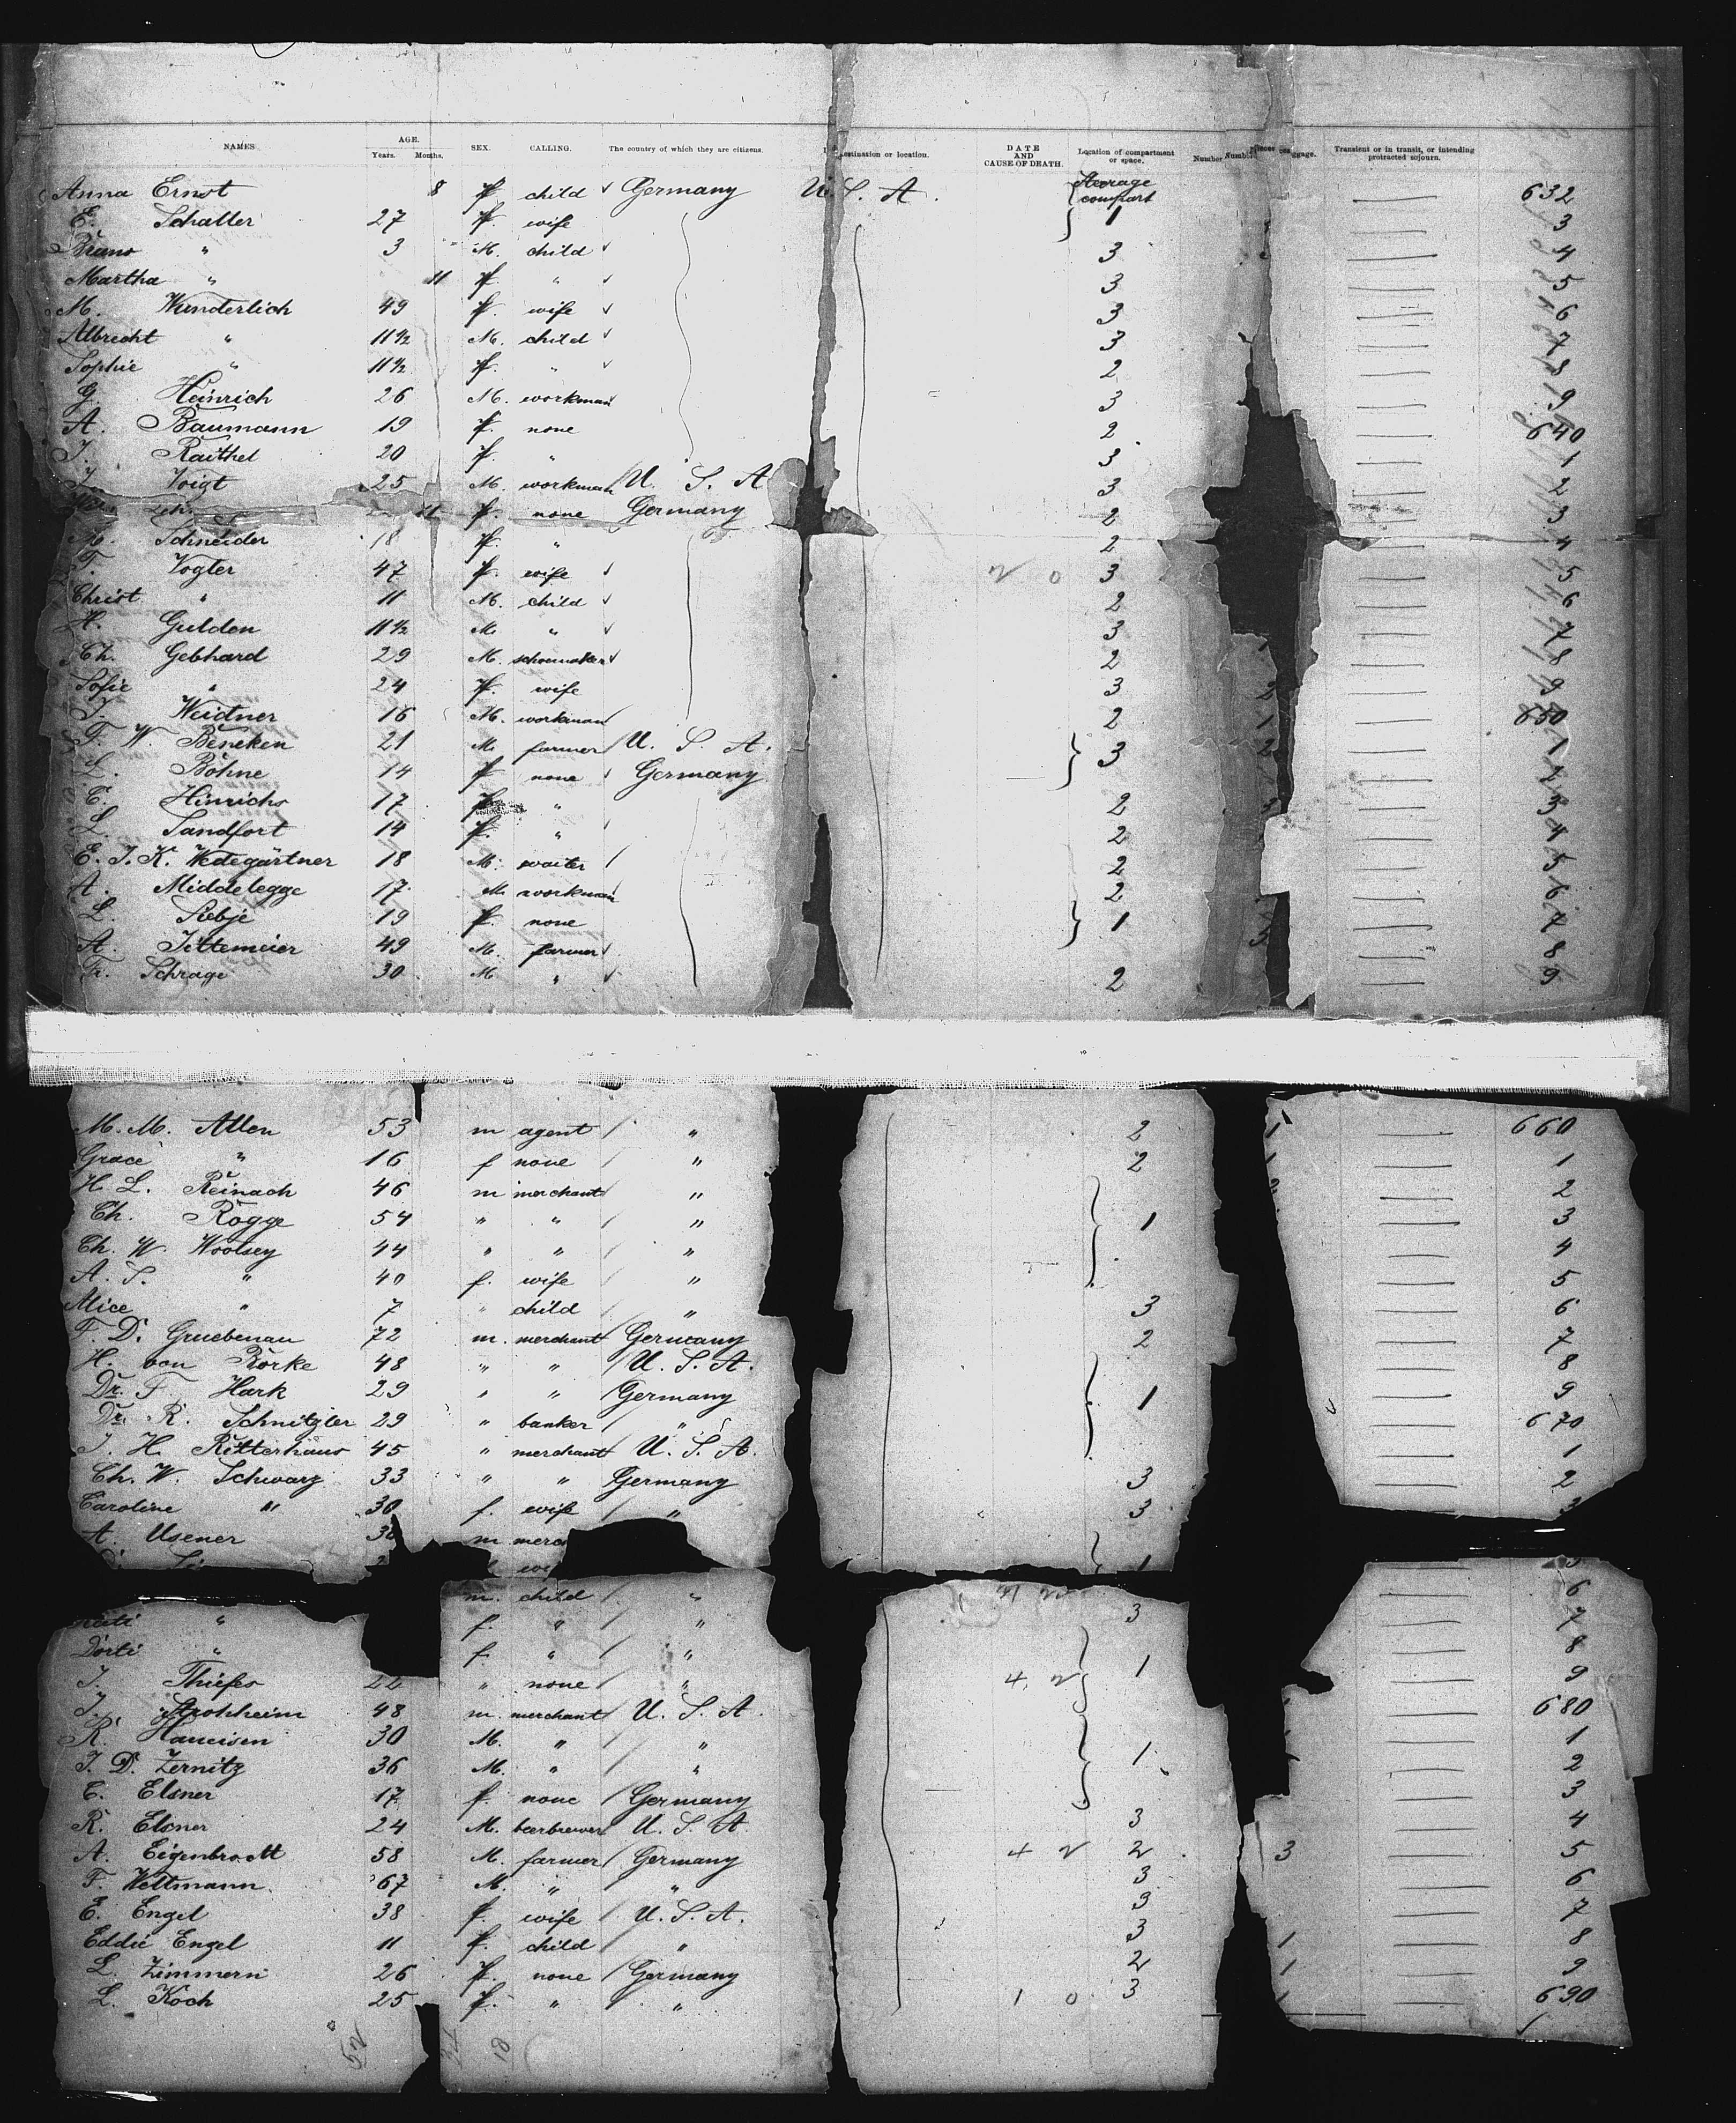 NAMES AGE. Years. Months. SEX. CALLING. The country of which they are citizens. destination or location. DATE AND CAUSE OF DEATH. Location of compartment or space. Number Transient or in transit, or intending protracted sojourn.
Anna Ernst 8 f. child Germany U.S.A. Steerage compart 1 632
E. Schaller 27 f. wife 3
Bruno " 3 M. child 3 4
Martha " 11 f. " 3 5
M. Wunderlich 49 f. wife 3 6
Albrecht " 11½ M. child 3 7
Sophie " 11½ f. " 2 8
G. Heinrich 26 M. workman 3 9
A. Baumann 19 f. none 2 640
J. Raithel 20 f. " 3 1
J. Voigt 25 M. workman U. S. A 3 2
11 f. none Germany 2 3
M. Schneider 18 f. " 2 4
F. Vogter 47 f. wife 2 0 3 5
Christ " 11 M. child 2 6
H. Gulden 11½ M. " 3 7
Ch. Gebhard 29 M. schoemaker 2 1 8
Sofie " 24 f. wife 3 2 9
J. Weidner 16 M. workman 2 1 650
F. W. Beneken 21 M. farmer U. S. A. 3 2 1
L. Böhne 14 f. none Germany 2
C. Hinrichs 17 f. " 2 3 3
L. Sandfort 14 f. " 2 4
E. J. K. Wedegärtner 18 M. waiter 2 5
A. Middelegge 17 M. workman 2 6
L. Siebje 19 f. none 1 7
A. Tittemeier 49 M. farmer 8
Fr. Schrage 30 M. " 2 9
M. M. Allen 53 m agent " 2 1 660
Grace " 16 f none " 2 1 1
H. L. Reinach 46 m merchant " 2 2
Ch. Rogge 54 " " " 1 3
Ch. W. Woolsey 44 " " " 4
A. S. " 40 f. wife " 5
Alice " 7 " child " 3 6
F. D. Gruebenau 72 m. merchant Germany 2 7
H. von Rörke 48 " " U. S. A. 8
Dr. F. Hark 29 " " Germany 1 9
Dr. R. Schnitzler 29 " banker " 670
J. H. Ritterhaus 45 " merchant U. S. A. 1
Ch. W. Schwarz 33 " " Germany 3 2
Caroline " 30 f. wife " 3 3
A. Usener 30 m merc
1
m. child " 3 6
Käti " f. " " 7
Dorti " f. " " 1 8
J. Thiefes 22 " none " 4 2 9
J. Strohheim 48 m. merchant U. S. A. 680
R. Haneisen 30 M. " " 1
J. D. Zernitz 36 M. " " 1 2
C. Elsner 17 f. none Germany 3
R. Elsner 24 M. beerbrewer U. S. A. 3 4
A. Eigenbrodt 58 M. farmer Germany 4 2 2 3 5
F. Weltmann 67 M. " " 3 6
E. Engel 38 f. wife U. S. A. 3 7
Eddie Engel 11 f. child " 3 1 8
L. Zimmern 26 f. none Germany 2 1 9
L. Koch 25 f. " " 1 0 3 1 690